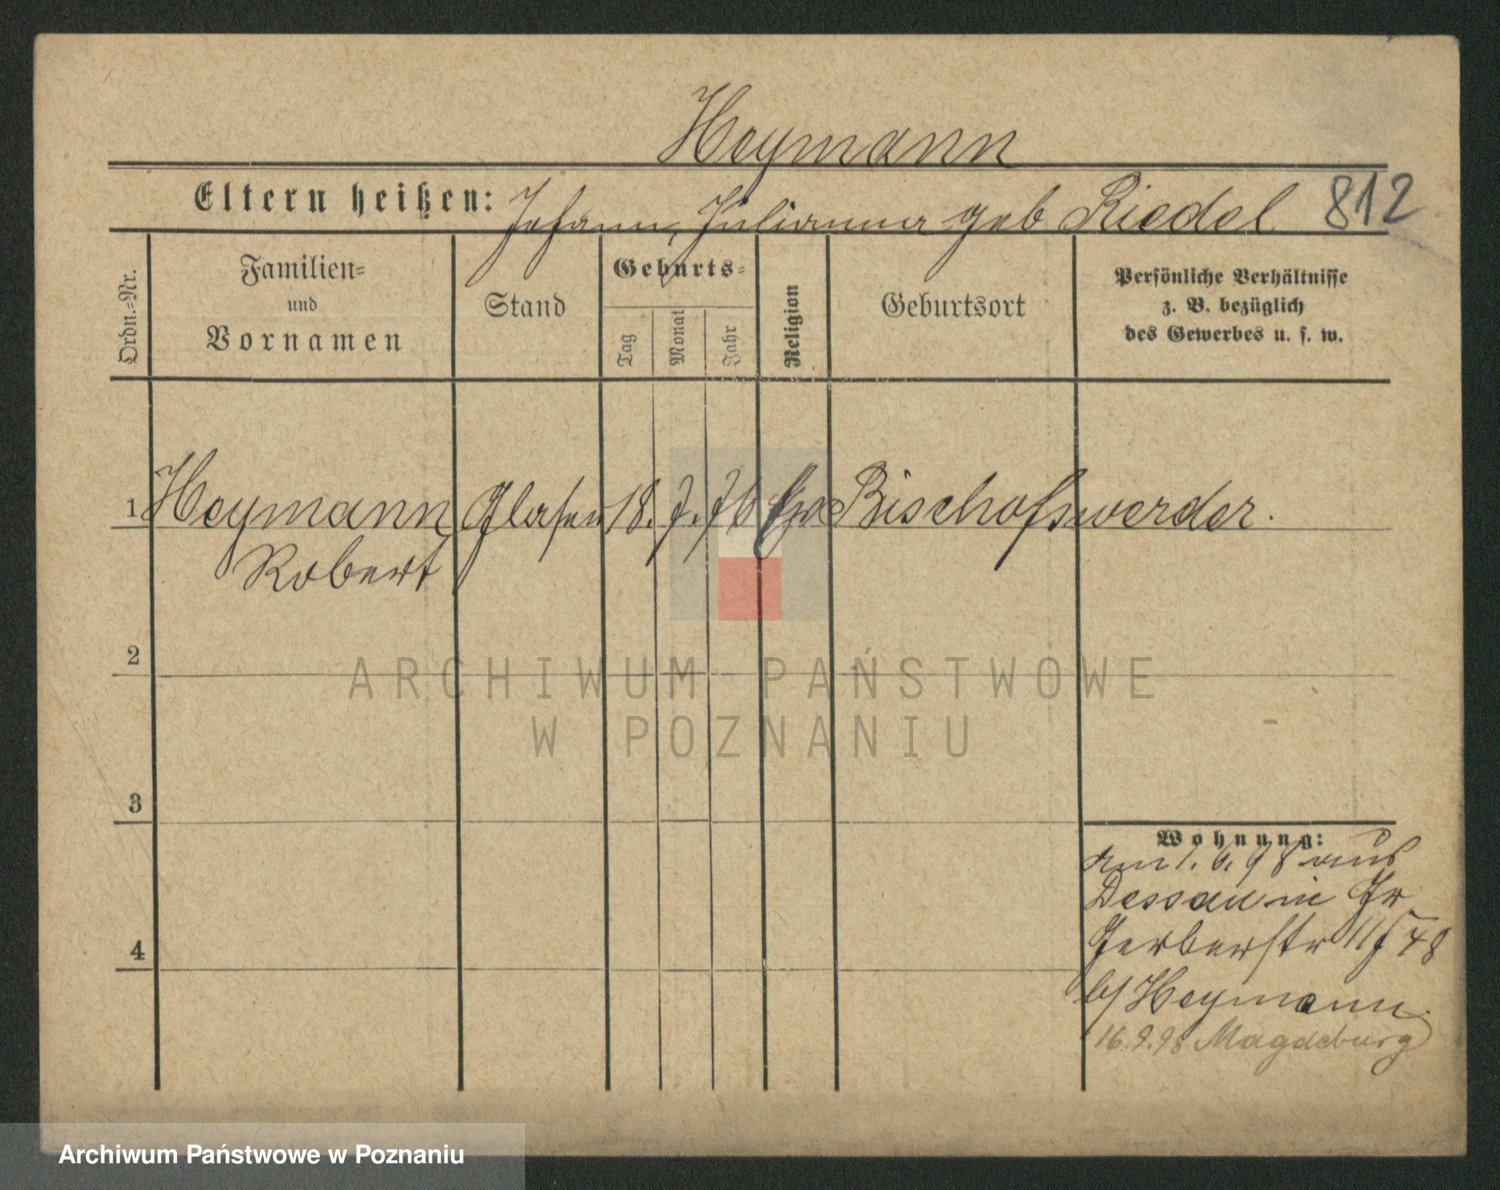 Heymann
Eltern heißen: Johann, Julianna geb Riedel 812
Ordn.=Nr.
Familien=
und
Vornamen
Stand
Geburts=
Tag
Monat
Jahr
Religion
Geburtsort
Persönliche Verhältnisse
z. B. bezüglich
des Gewerbes u. s. w.
1 Heymann Glaser 18. 7. 76 Ev Bischofswerder.
Robert
2
ARCHIWUM PAŃSTWOWE
W POZNANIU
3
Wohnung:
am 1. 6. 98 aus
Dessau in Gr
Gerberstr 48
b/ Heymann.
16.9.98 Magdeburg
4
Archiwum Państwowe w Poznaniu